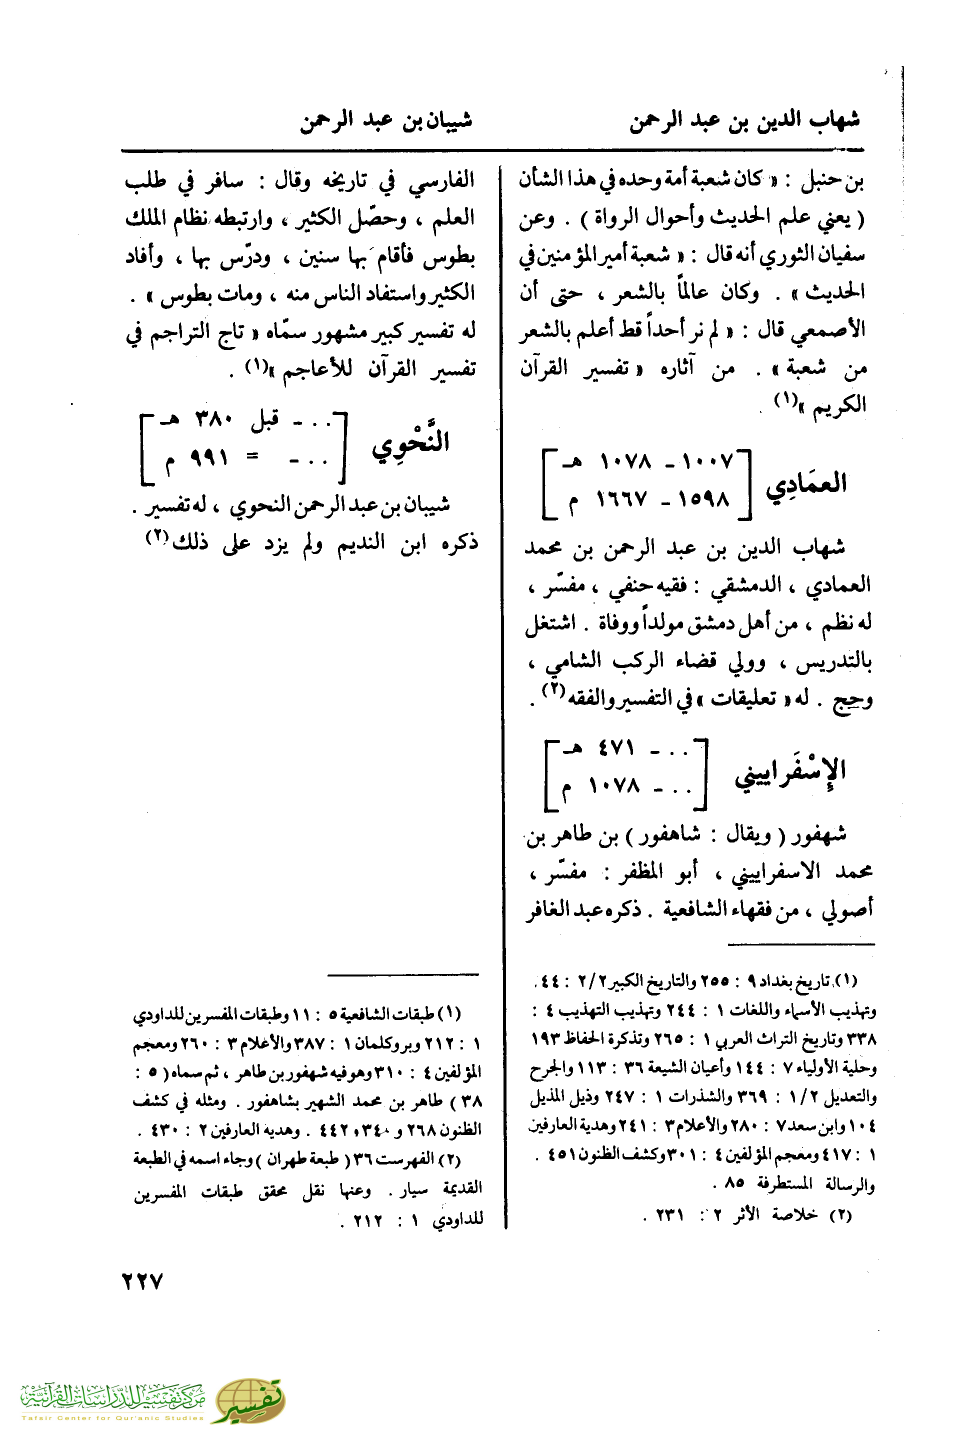 شهاب الدين بن عبد الرحمن
شيبان بن عبد الرحمن
بن حنبل : « كان شعبة أمة وحده في هذا الشأن
( يعني علم الحديث وأحوال الرواة ) . وعن
سفيان الثوري أنه قال : « شعبة أمير المؤمنين في
الحديث » . وكان عالماً بالشعر ، حتى أن
الأصمعي قال : « لم نر أحداً قط أعلم بالشعر
من شعبة » . من آثاره « تفسير القرآن
الكريم »(١) .
العمَادِي
١٠٠٧ - ١٠٧٨ هـ
١٥٩٨ - ١٦٦٧ م
شهاب الدين بن عبد الرحمن بن محمد
العمادي ، الدمشقي : فقيه حنفي ، مفسّر ،
له نظم ، من أهل دمشق مولداً ووفاة . اشتغل
بالتدريس ، وولي قضاء الركب الشامي ،
وحج . له « تعليقات » في التفسير والفقه(٢) .
الإِسْفَراييني
... - ٤٧١ هـ
... - ١٠٧٨ م
شهفور ( ويقال : شاهفور ) بن طاهر بن
محمد الاسفراييني ، أبو المظفر : مفسّر ،
أصولي ، من فقهاء الشافعية . ذكره عبد الغافر
(١) تاريخ بغداد ٩ : ٢٥٥ والتاريخ الكبير ٢/٢ : ٤٤.
وتهذيب الأسماء واللغات ١ : ٢٤٤ وتهذيب التهذيب ٤ :
٣٣٨ وتاريخ التراث العربي ١ : ٢٦٥ وتذكرة الحفاظ ١٩٣
وحلية الأولياء ٧ : ١٤٤ وأعيان الشيعة ٣٦ : ١١٣ والجرح
والتعديل ١/٢ : ٣٦٩ والشذرات ١ : ٢٤٧ وذيل المذيل
١٠٤ وابن سعد ٧ : ٢٨٠ والأعلام ٣ : ٢٤١ وهدية العارفين
١ : ٤١٧ ومعجم المؤلفين ٤ : ٣٠١ وكشف الظنون ٤٥١ .
والرسالة المستطرفة ٨٥ .
(٢) خلاصة الأثر ٢ : ٢٣١ .
الفارسي في تاريخه وقال : سافر في طلب
العلم ، وحصّل الكثير ، وارتبطه نظام الملك
بطوس فأقام بها سنين ، ودرّس بها ، وأفاد
الكثير واستفاد الناس منه ، ومات بطوس » .
له تفسير كبير مشهور سمّاه « تاج التراجم في
تفسير القرآن للأعاجم »(١) .
النَّحْوِي
... - قبل ٣٨٠ هـ
... - = ٩٩١ م
شيبان بن عبد الرحمن النحوي ، له تفسير .
ذكره ابن النديم ولم يزد على ذلك(٢)
(١) طبقات الشافعية ٥ : ١١ وطبقات المفسرين للداودي
١ : ٢١٢ وبروكلمان ١ : ٣٨٧ والأعلام ٣ : ٢٦٠ ومعجم
المؤلفين ٤ : ٣١٠ وهو فيه شهفور بن طاهر ، ثم سماه ( ٥ :
٣٨ ) طاهر بن محمد الشهير بشاهفور . ومثله في كشف
الظنون ٢٦٨ و ٣٤٠ و ٤٤٢ . وهديه العارفين ٢ : ٤٣٠ .
(٢) الفهرست ٣٦ ( طبعة طهران ) وجاء اسمه في الطبعة
القديمة سيار . وعنها نقل محقق طبقات المفسرين
للداودي ١ : ٢١٢ .
٢٢٧
مركز تفسير للدراسات القرآنية
Tafsir Center for Qur'anic Studies
تفسير